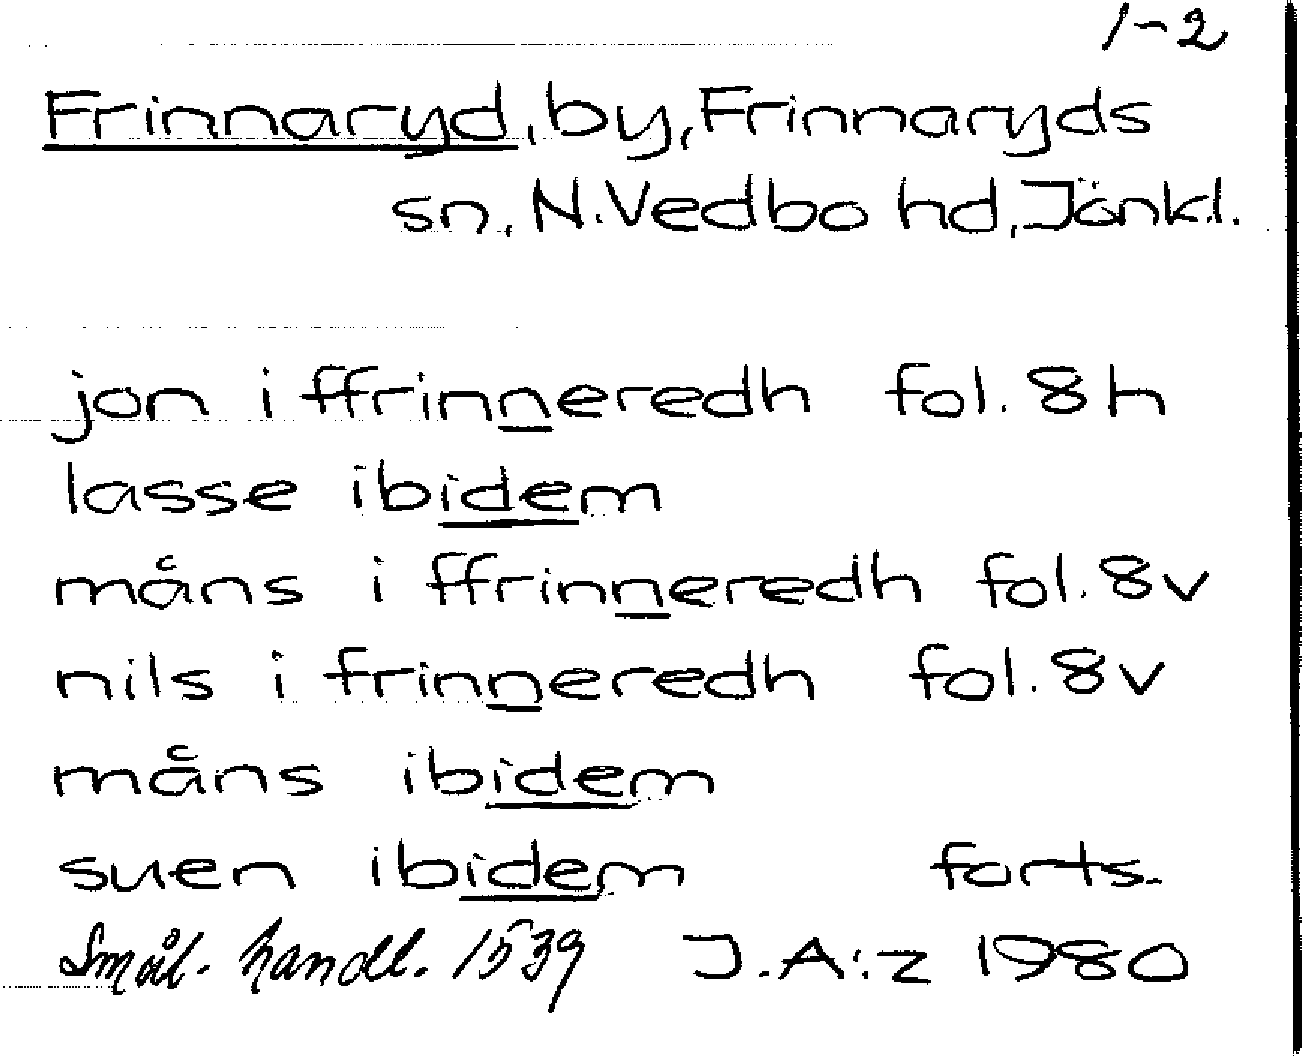 1-2
Frinnaryd, by, Frinnaryds
sn, N. Vedbo hd, Jönk.l.
jon i ffrinneredh fol. 8h
lasse ibidem
måns i ffrinneredh fol. 8v
nils i frinneredh fol. 8v
måns ibidem
suen ibidem forts.
Smål. handl. 1539 J.A:z 1980